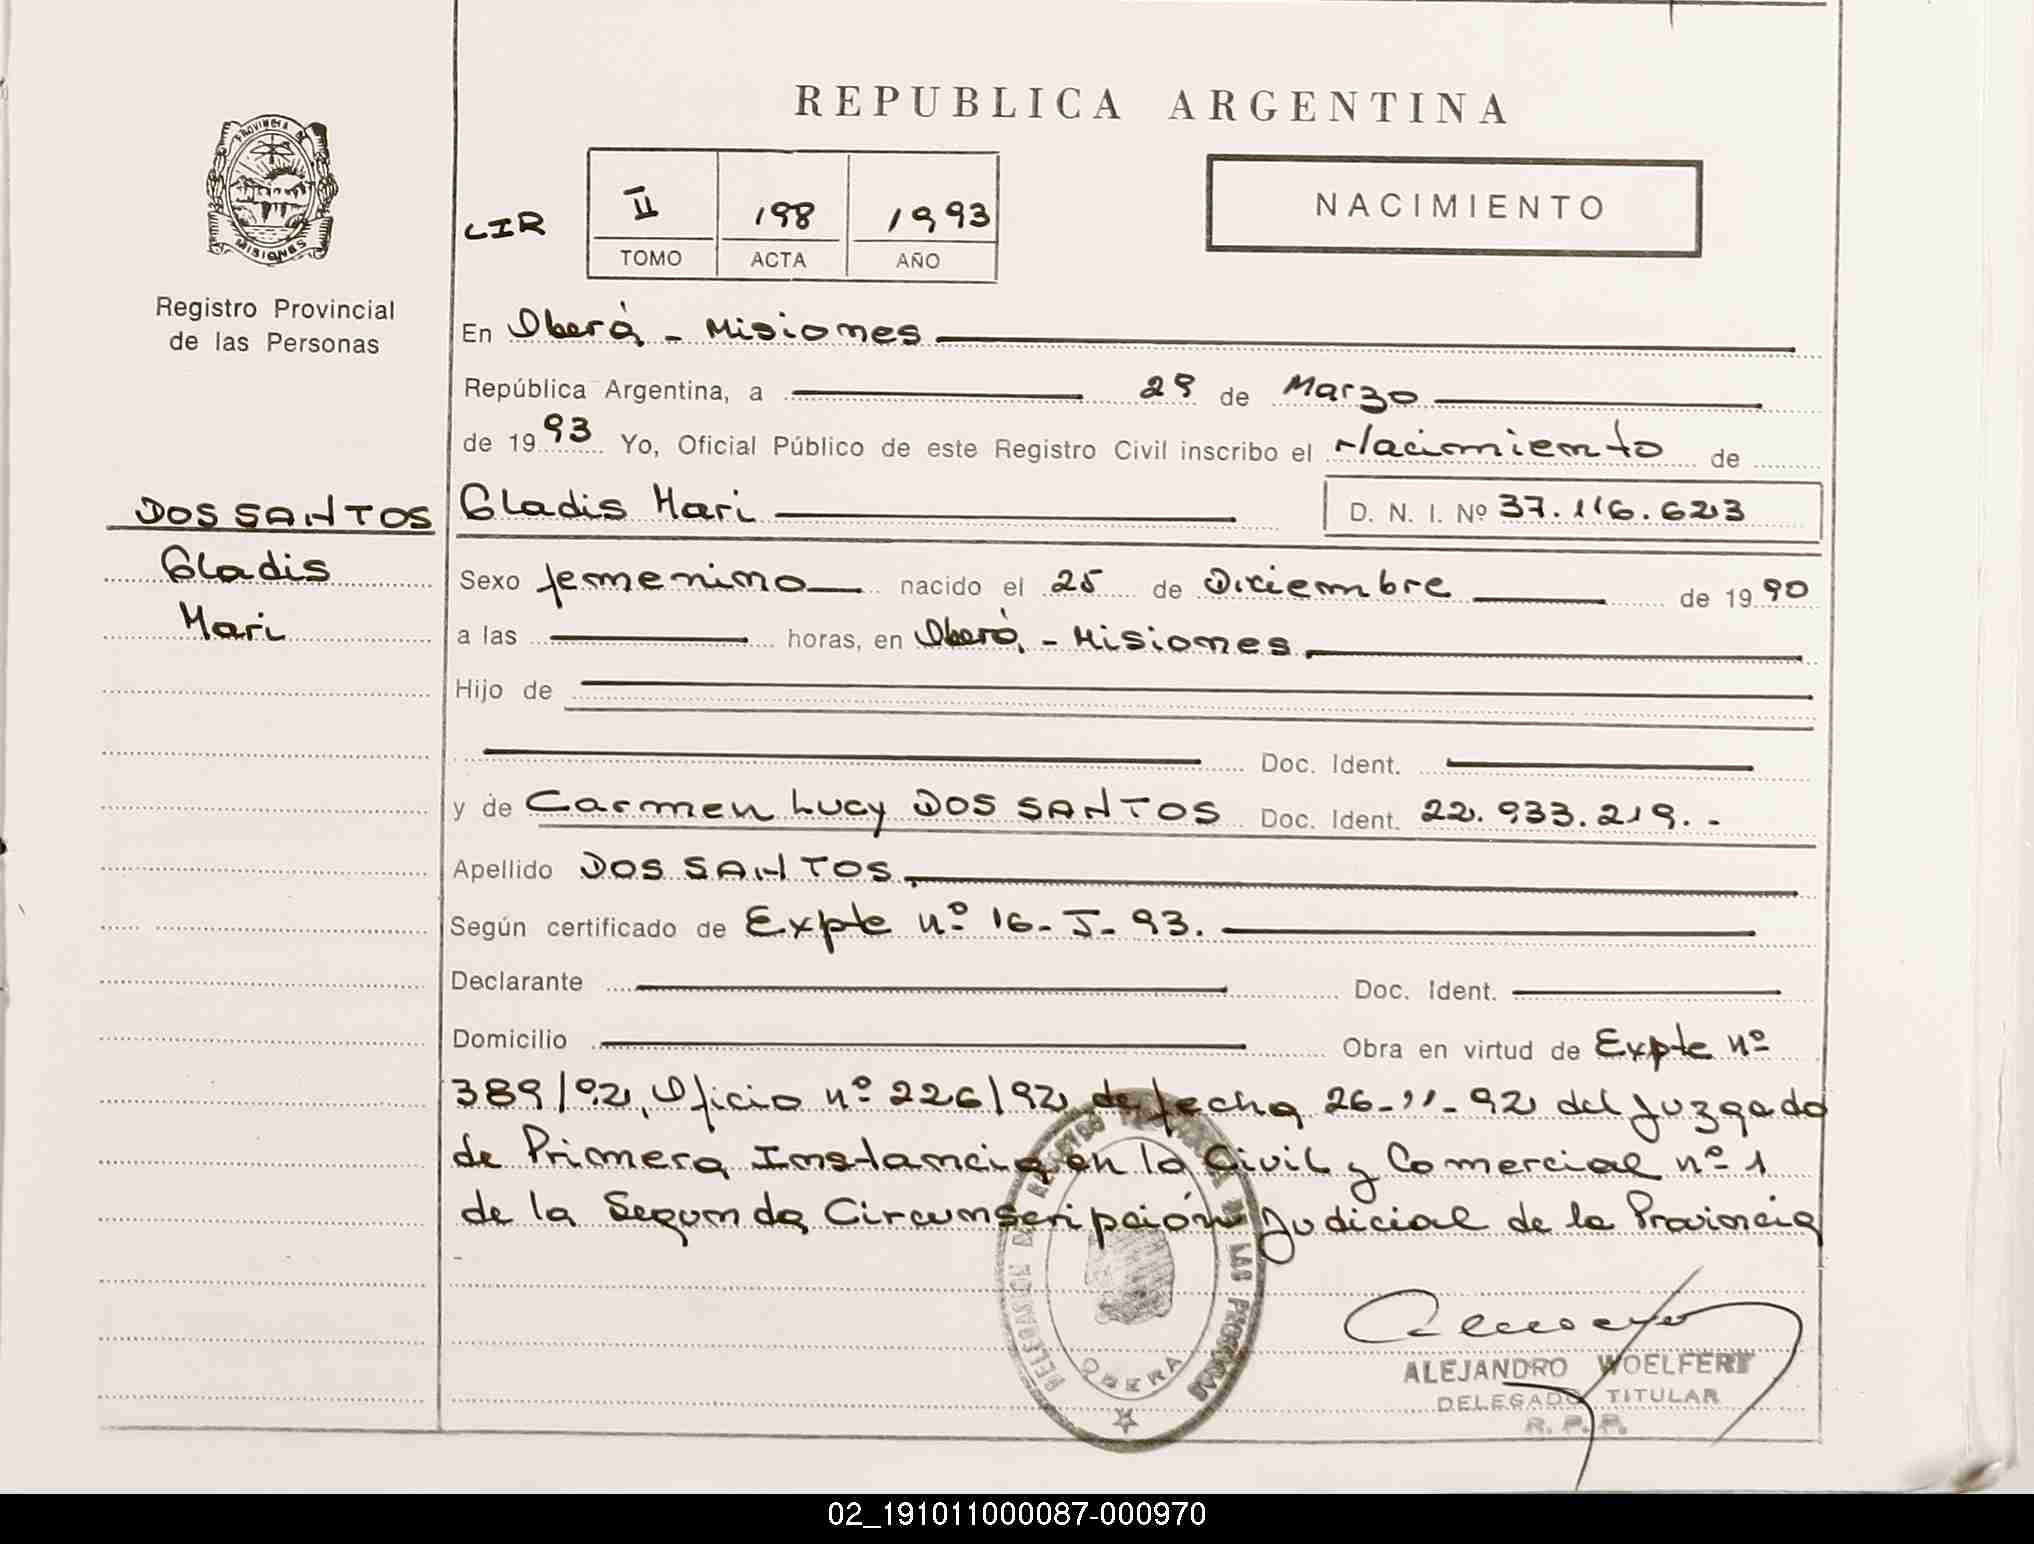 REPUBLICA ARGENTINA
PROVINCIA DE
MISIONES
Registro Provincial
de las Personas
CIR
II 198 1993
TOMO ACTA AÑO
NACIMIENTO
En Oberá - Misiones
República Argentina, a 29 de Marzo
de 1993 Yo, Oficial Público de este Registro Civil inscribo el Nacimiento de
DOS SANTOS
Gladis
Mari
Gladis Mari D. N. I. Nº 37.116.623
Sexo femenino nacido el 25 de Diciembre de 1990
a las horas, en Oberá - Misiones
Hijo de
Doc. Ident.
y de Carmen Lucy DOS SANTOS Doc. Ident. 22.933.219.-
Apellido DOS SANTOS
Según certificado de Expte nº 16-I-93.
Declarante Doc. Ident.
Domicilio Obra en virtud de Expte nº
389/92, Oficio nº 226/92 de fecha 26-11-92 del Juzgado
de Primera Instancia en lo Civil y Comercial nº 1
de la Segunda Circunscripción Judicial de la Provincia
OBERA
ALEJANDRO WOELFERT
DELEGADO TITULAR
R. P. P.
02_191011000087-000970